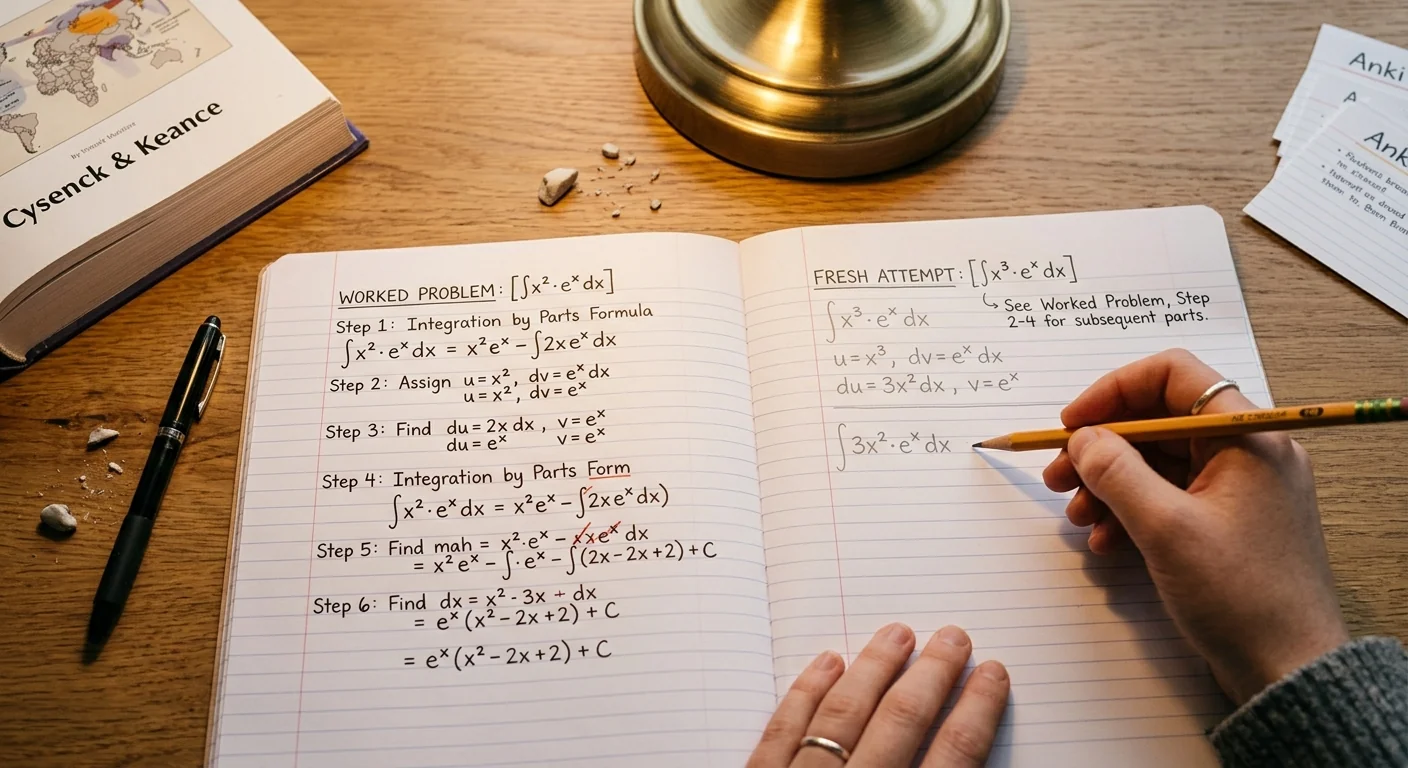 Cysenck & Keance
WORKED PROBLEM: [∫x²·eˣ dx]
Step 1: Integration by Parts Formula
∫x²·eˣ dx = x²eˣ − ∫2x eˣ dx
Step 2: Assign u = x², dv = eˣ dx
u = x², dv = eˣ
Step 3: Find du = 2x dx, v = eˣ
du = eˣ v = eˣ
Step 4: Integration by Parts Form
∫x²·eˣ dx = x²eˣ − ∫2x eˣ dx)
Step 5: Find mah = x²·eˣ − xxeˣ dx
= x²eˣ − ∫·eˣ − ∫(2x − 2x + 2) + C
Step 6: Find dx = x² - 3x + dx
= eˣ(x² − 2x + 2) + C
= eˣ(x² − 2x + 2) + C
FRESH ATTEMPT: [∫x³·eˣ dx]
↳ See Worked Problem, Step
2-4 for subsequent parts.
∫x³·eˣ dx
u = x³, dv = eˣ dx
du = 3x² dx, v = eˣ
∫3x²·eˣ dx
Anki
A
Ank